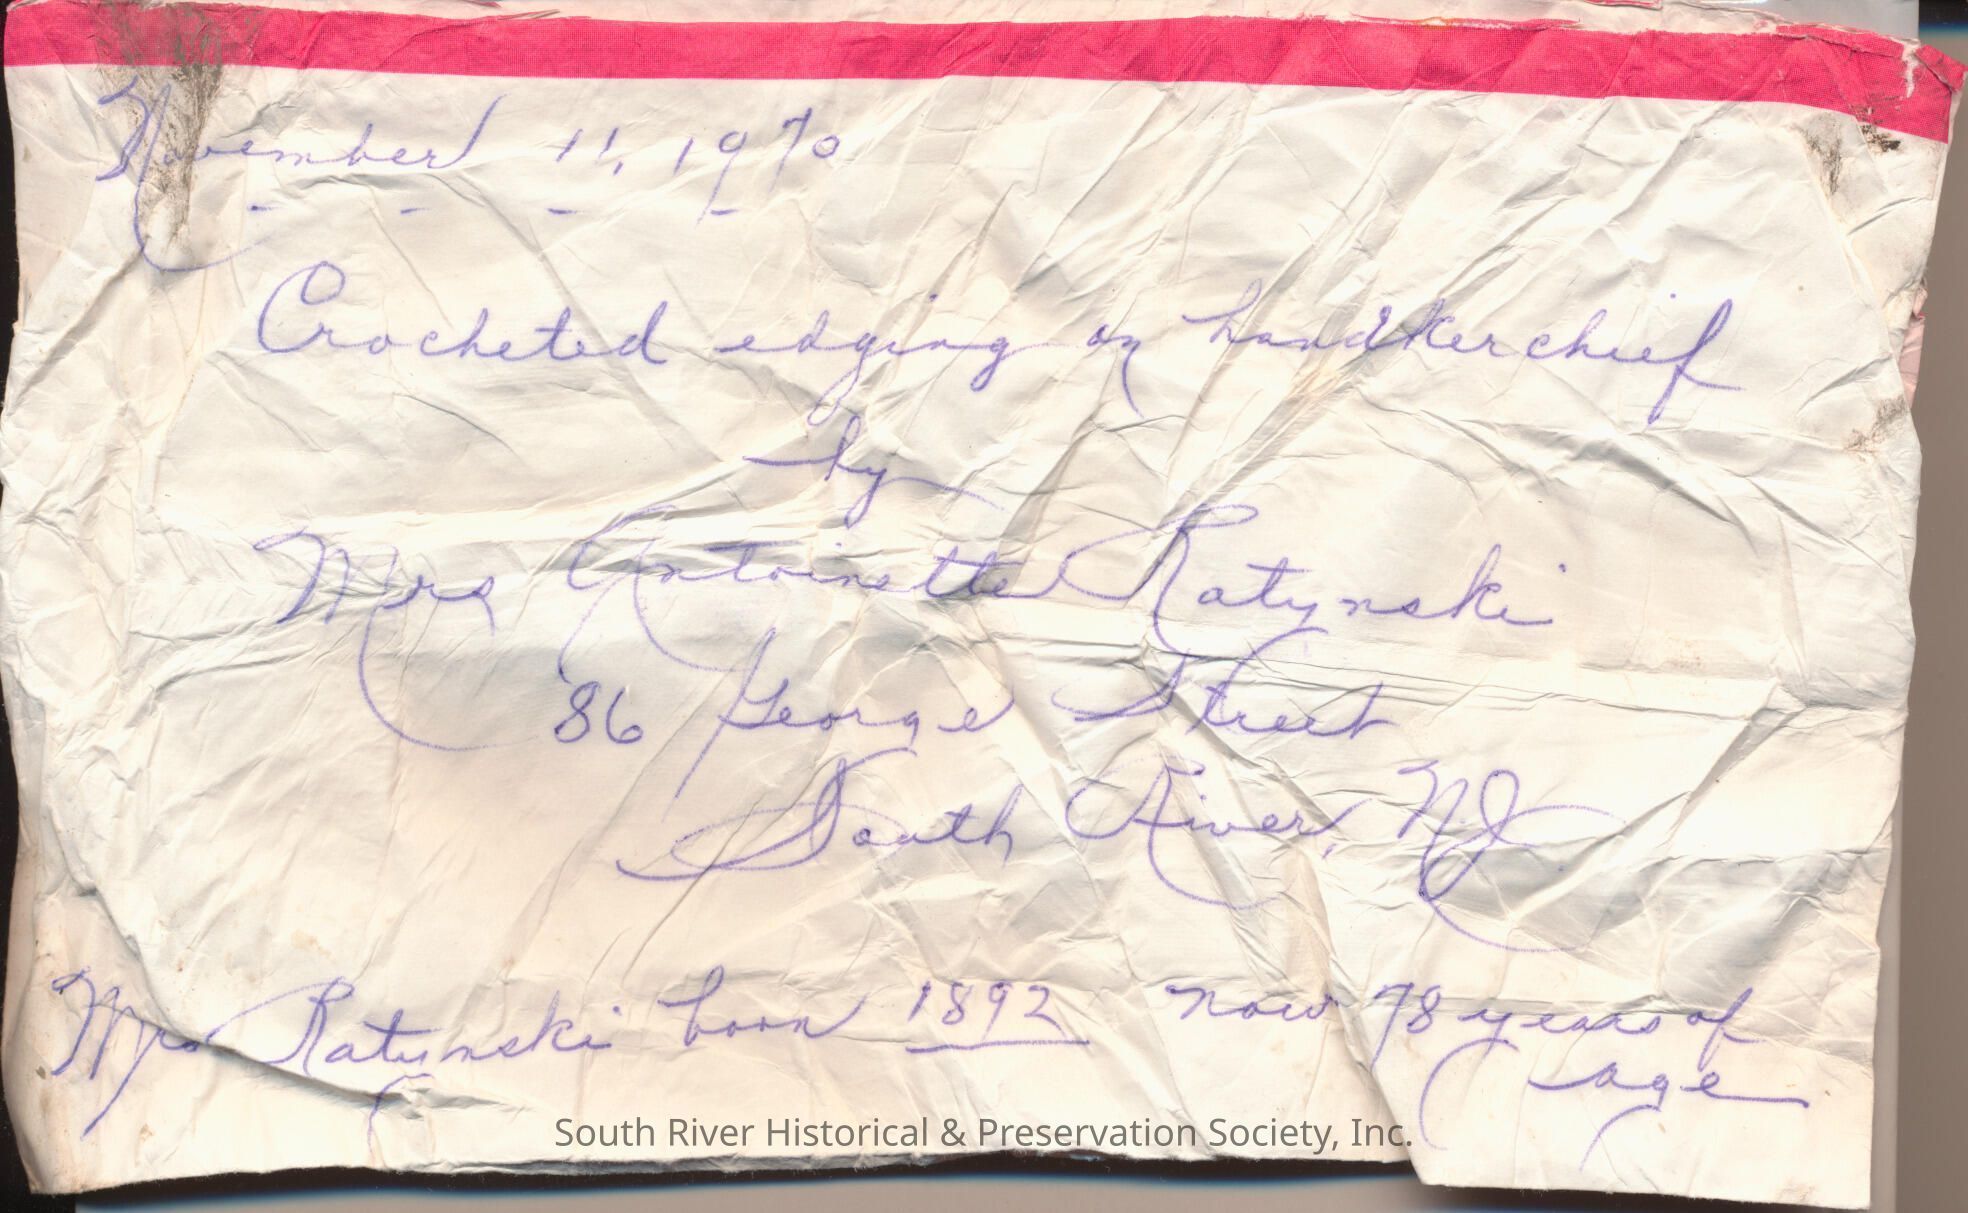 November 11, 1970
Crocheted edging on handkerchief
by
Mrs Antoinette Ratynski
86 George Street
South River, N.J.
Mrs Ratynski born 1892 now 78 years of
age
South River Historical & Preservation Society, Inc.